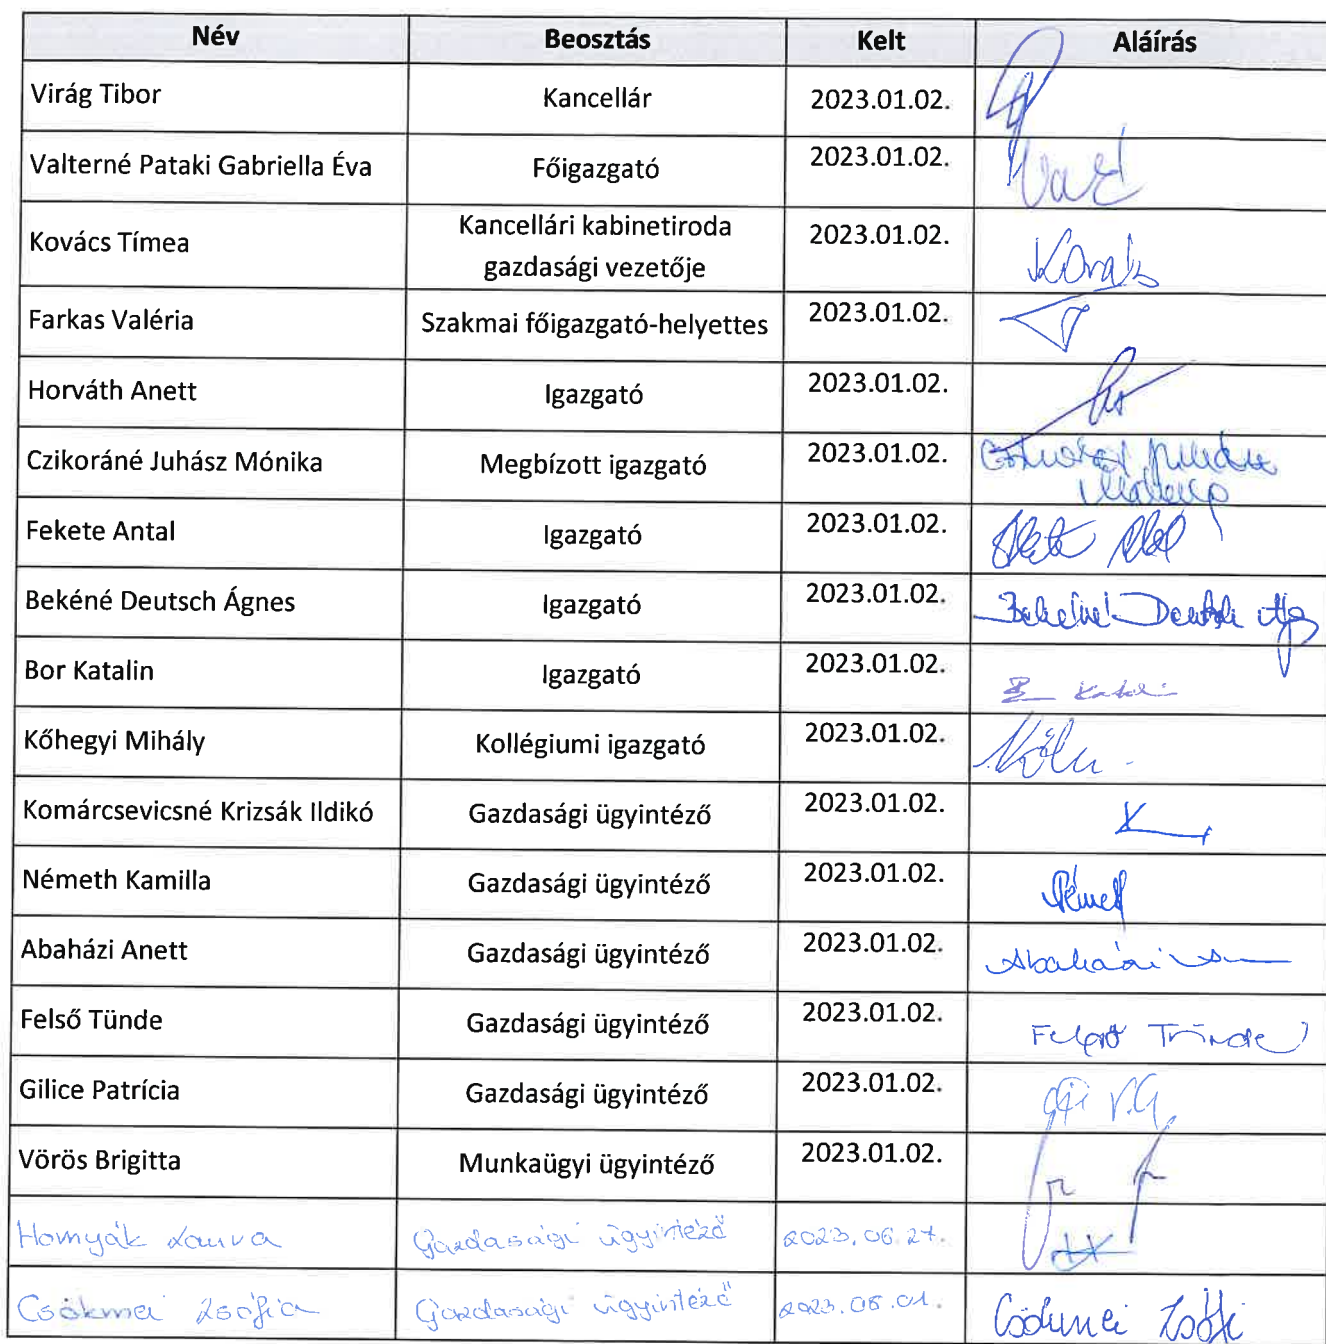 Név Beosztás Kelt Aláírás
Virág Tibor Kancellár 2023.01.02.
Valterné Pataki Gabriella Éva Főigazgató 2023.01.02.
Kovács Tímea Kancellári kabinetiroda gazdasági vezetője 2023.01.02. Kovács
Farkas Valéria Szakmai főigazgató-helyettes 2023.01.02.
Horváth Anett Igazgató 2023.01.02.
Czikoráné Juhász Mónika Megbízott igazgató 2023.01.02.
Fekete Antal Igazgató 2023.01.02.
Bekéné Deutsch Ágnes Igazgató 2023.01.02. Bekéné Deutsch Ág
Bor Katalin Igazgató 2023.01.02.
Kőhegyi Mihály Kollégiumi igazgató 2023.01.02.
Komárcsevicsné Krizsák Ildikó Gazdasági ügyintéző 2023.01.02.
Németh Kamilla Gazdasági ügyintéző 2023.01.02. Németh
Abaházi Anett Gazdasági ügyintéző 2023.01.02. Abaházi
Felső Tünde Gazdasági ügyintéző 2023.01.02. Felső Tünde
Gilice Patrícia Gazdasági ügyintéző 2023.01.02.
Vörös Brigitta Munkaügyi ügyintéző 2023.01.02.
Hornyák Laura Gazdasági ügyintéző 2023.06.27.
Csökmei Zsófia Gazdasági ügyintéző 2023.08.01. Csökmei Zsófi